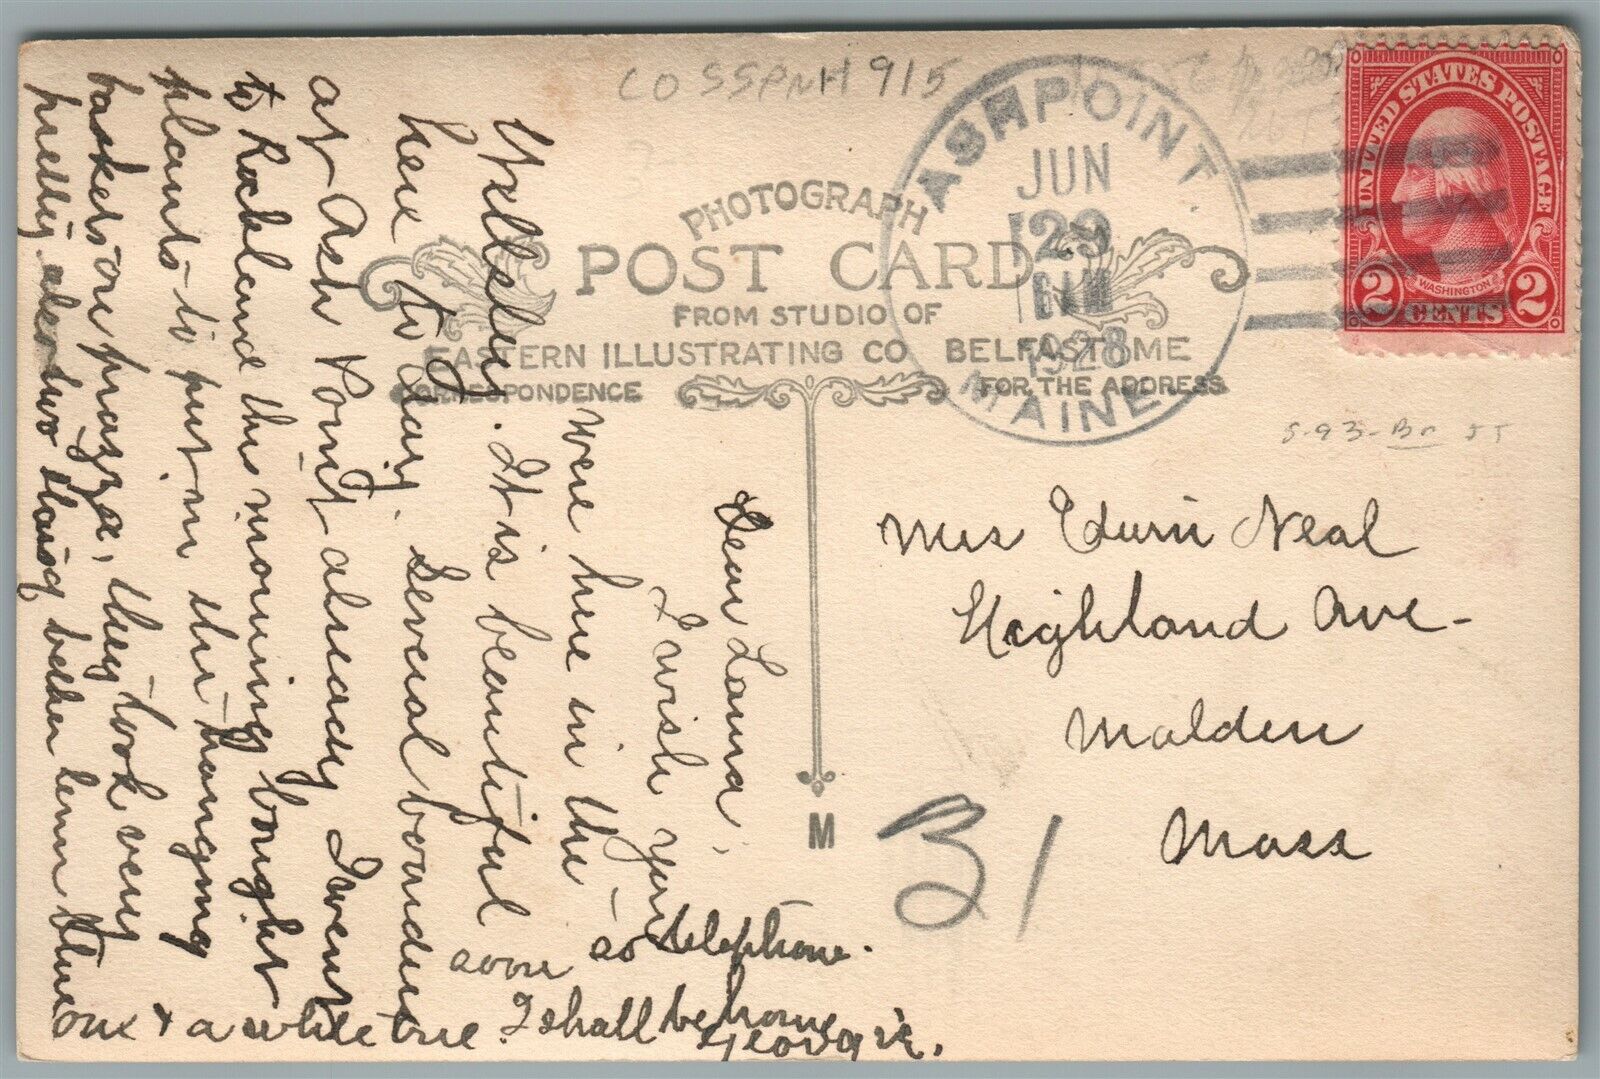 COSSPNH915
ASHPOINT
JUN
29
6AM
1928
MAINE
UNITED STATES POSTAGE
WASHINGTON
2 CENTS 2
PHOTOGRAPH
POST CARD
FROM STUDIO OF
EASTERN ILLUSTRATING CO BELFAST ME
CORRESPONDENCE
FOR THE ADDRESS
M
S-93-Bn JT
Mrs Edwin Neal
Highland Ave-
Malden
Mass
31
Dear Lama,
I wish you
were here in the
It is beautiful
here to day. Several boarders
at Ash Point already I went
to Rockland this morning bought
plants to put in the hanging
baskets on piazza, they look very
pretty, also two
one & a white one. I shall be home
soon so telephone.
Georgie.